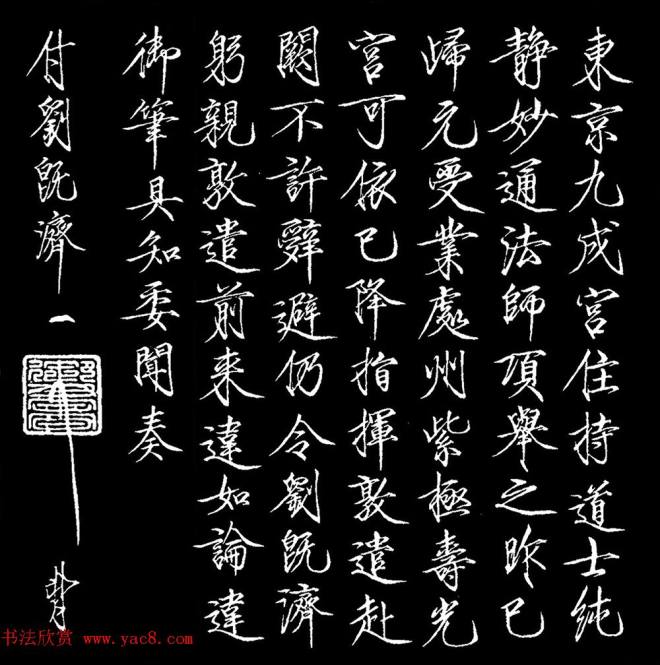 東京九成宮住持道士純
静妙通法師項舉之昨已
歸元受業處州紫極壽光
宮可依已降指揮敦遣赴
闕不許辤避仍令劉既濟
躬親敦遣前来違如論違
御筆具知委聞奏
付劉既濟
书法欣赏 www.yac8.com